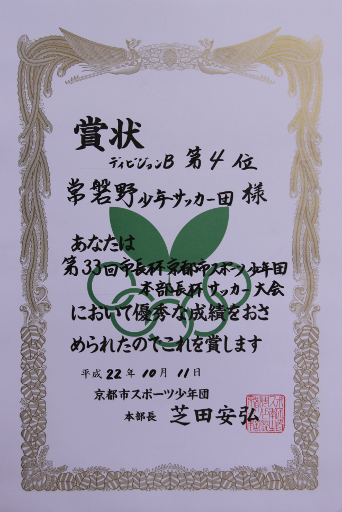 賞状
ディビジョンB 第4位
常磐野少年サッカー団 様
あなたは
第33回市長杯京都市スポーツ少年団
本部長杯サッカー大会
において優秀な成績をおさ
められたのでこれを賞します
平成22年10月11日
京都市スポーツ少年団
本部長 芝田安弘